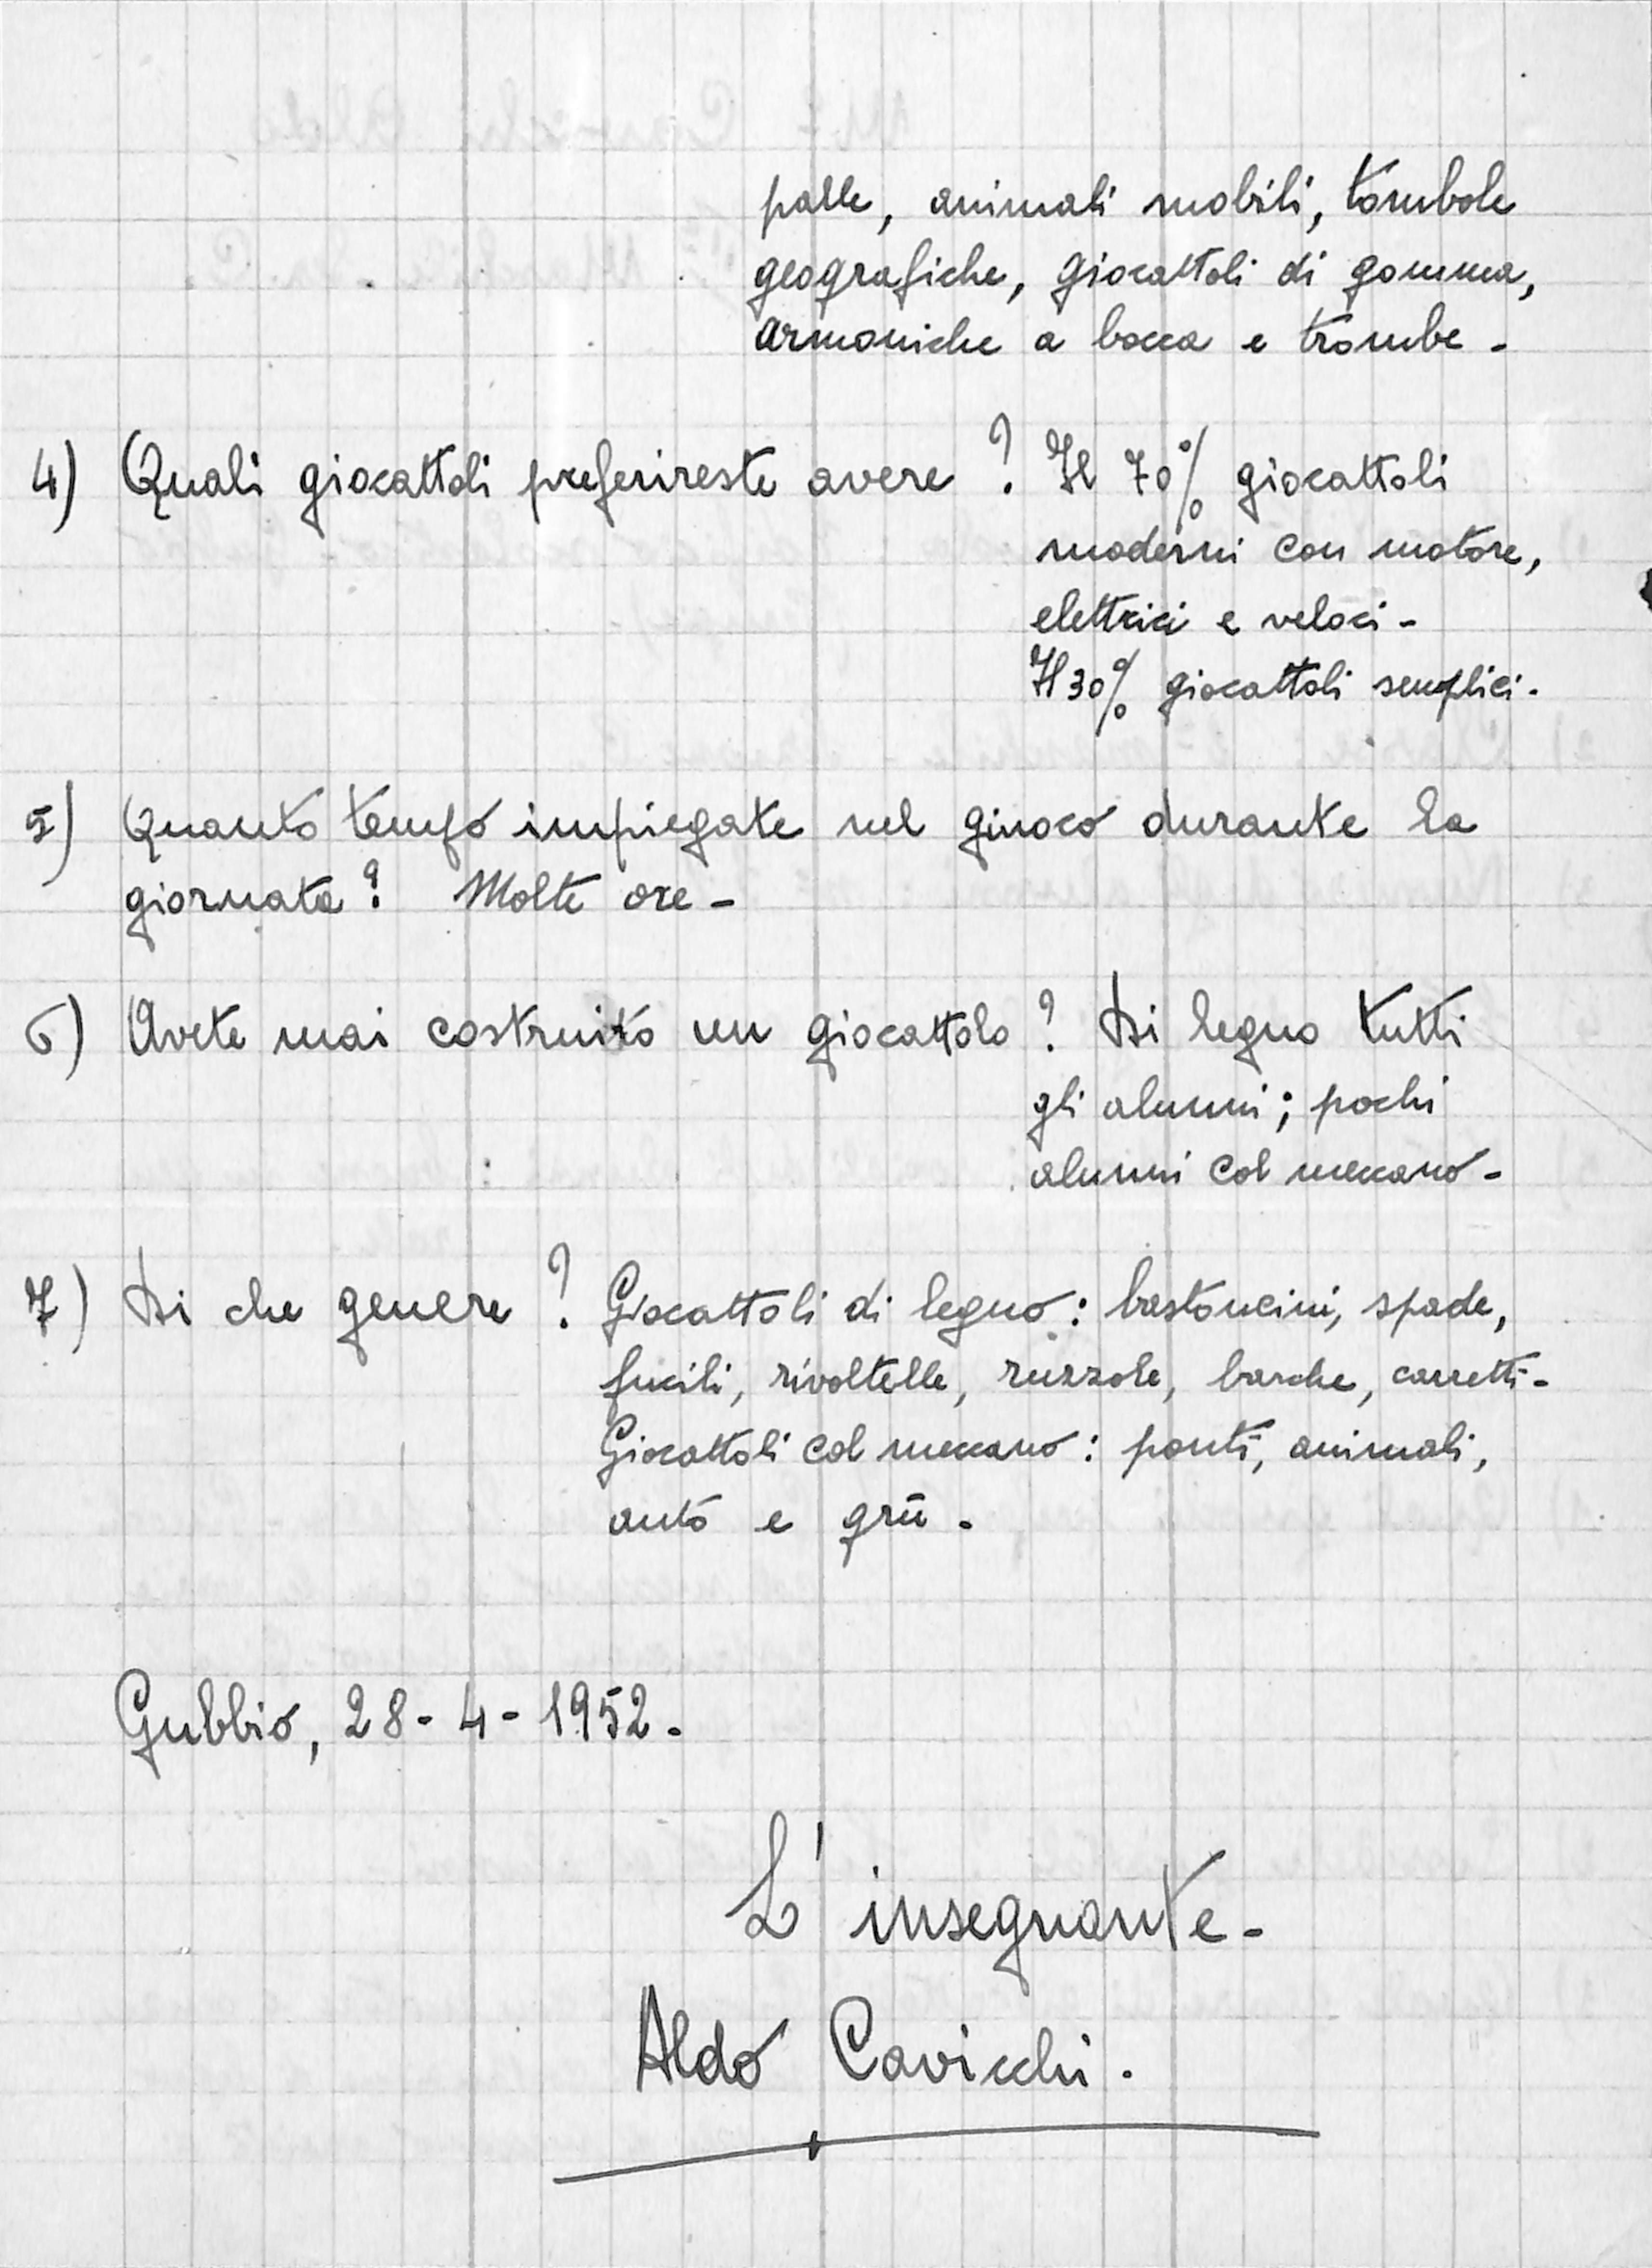 palle, animali mobili, tombole
geografiche, giocattoli di gomma,
armoniche a bocca e trombe -
4) Quali giocattoli preferireste avere? Il 70% giocattoli
moderni con motore,
elettrici e veloci -
Il 30% giocattoli semplici -
5) Quanto tempo impiegate nel ginoco durante la
giornata? Molte ore -
6) Avete mai costruito un giocattolo? Di legno tutti
gli alunni; pochi
alunni col meccano -
7) Di che genere? Giocattoli di legno: bastoncini, spade,
fucili, rivoltelle, ruzzole, barche, carretti -
Giocattoli col meccano: ponti, animali,
auto e grù.
Gubbio, 28-4-1952.
L'insegnante -
Aldo Cavicchi.